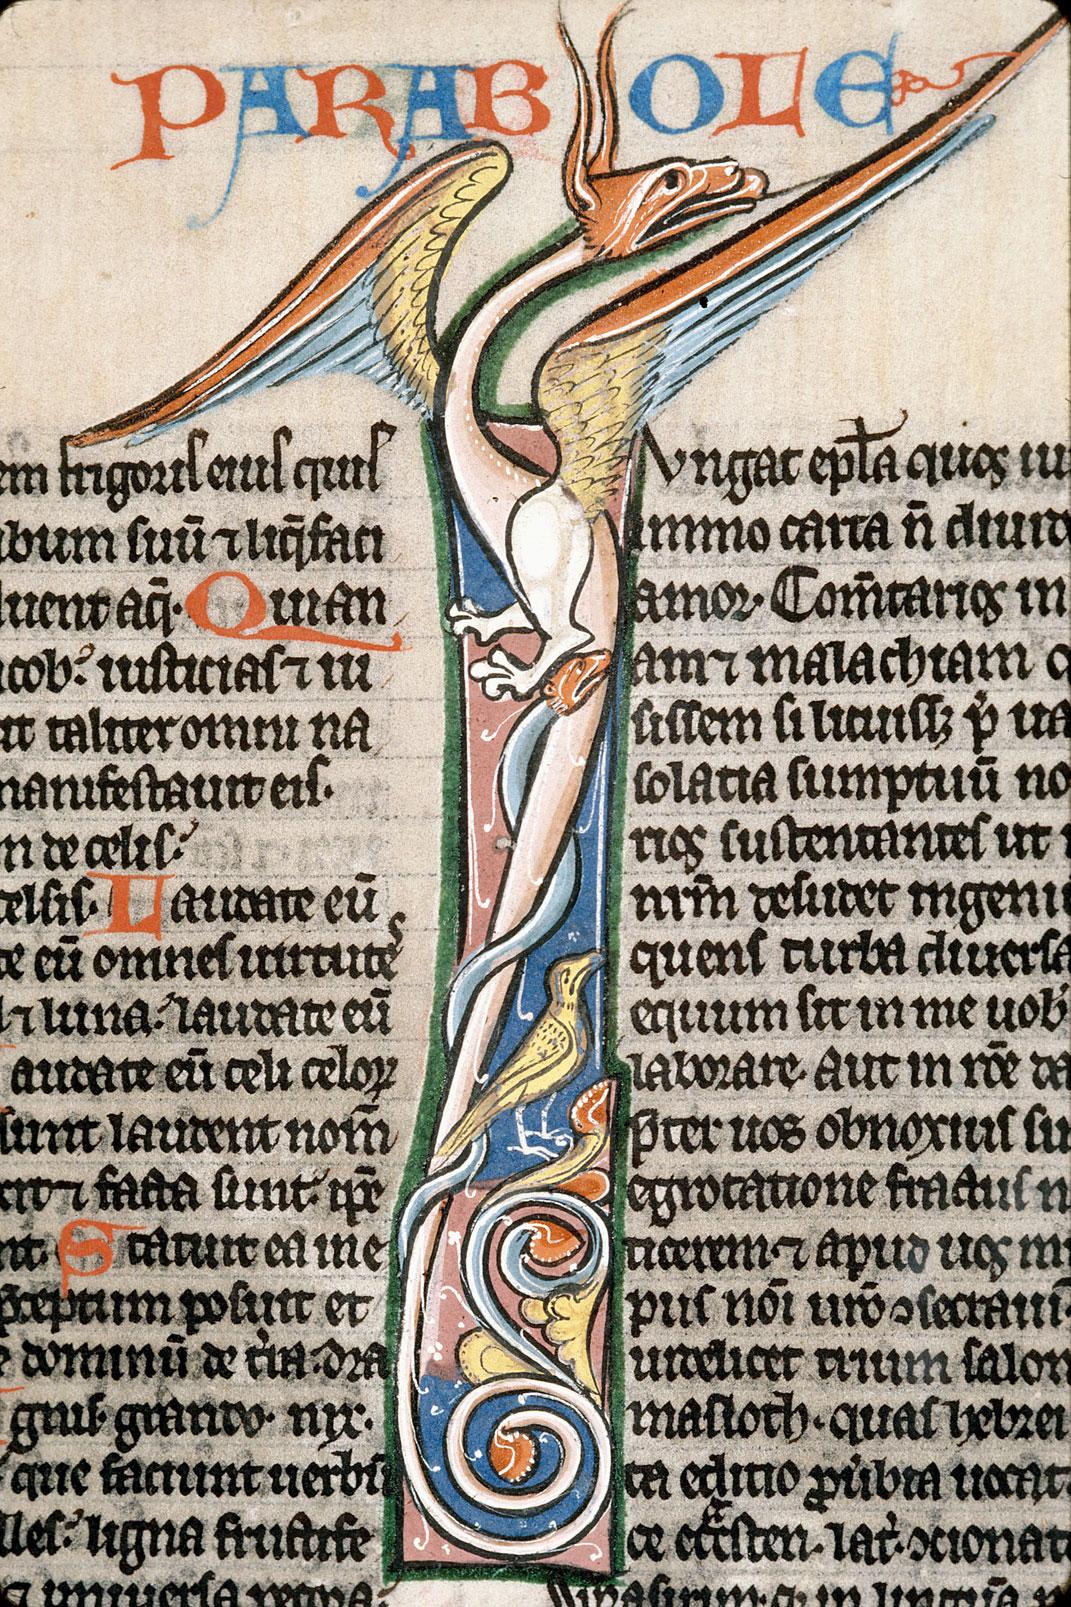 PARABOLE
em frigoris eius quis
bum suū ⁊ liq̄faci
luent aq̄. Quian
cob: iusticias ⁊ iu
it taliter omni na
manifestauit eis.
n de celis:
celsis. Laudate eū
te eū omnes uirtutes
l ⁊ luna: laudate eū
audate eū celi celoꝝ
sunt laudent nom̄
rit ⁊ facta sunt: ip̄e
nt. Statuit ea in e
p̄ceptum posuit et
e dominū de t'ra. dra
gnis. grando. nix.
que faciunt uerbū
lles: ligna fructife
⁊ uniuersa pecora:
Vngat ep̄la quos iu
immo carta n̄ diuid
amor. Com̄tarios in
am ⁊ malachiam o
sissem si licuissꝫ p̄ ua
solatia sumptuū no
rios sustentantes ut
nrm̄ desudet ingeni
quens turba diuersa
equum sit in me uob'
laborare. aut in rōe da
p̄ter uos obnoxius su
egrotatione fractus n
ticerem. ⁊ apud uos m
pus nōi uro ↄsecraui
uidelicet trium salom
masloth. quas hebrei
ta editio ꝓuerbia uocat
ce eccl'sten. lat' ↄcionat